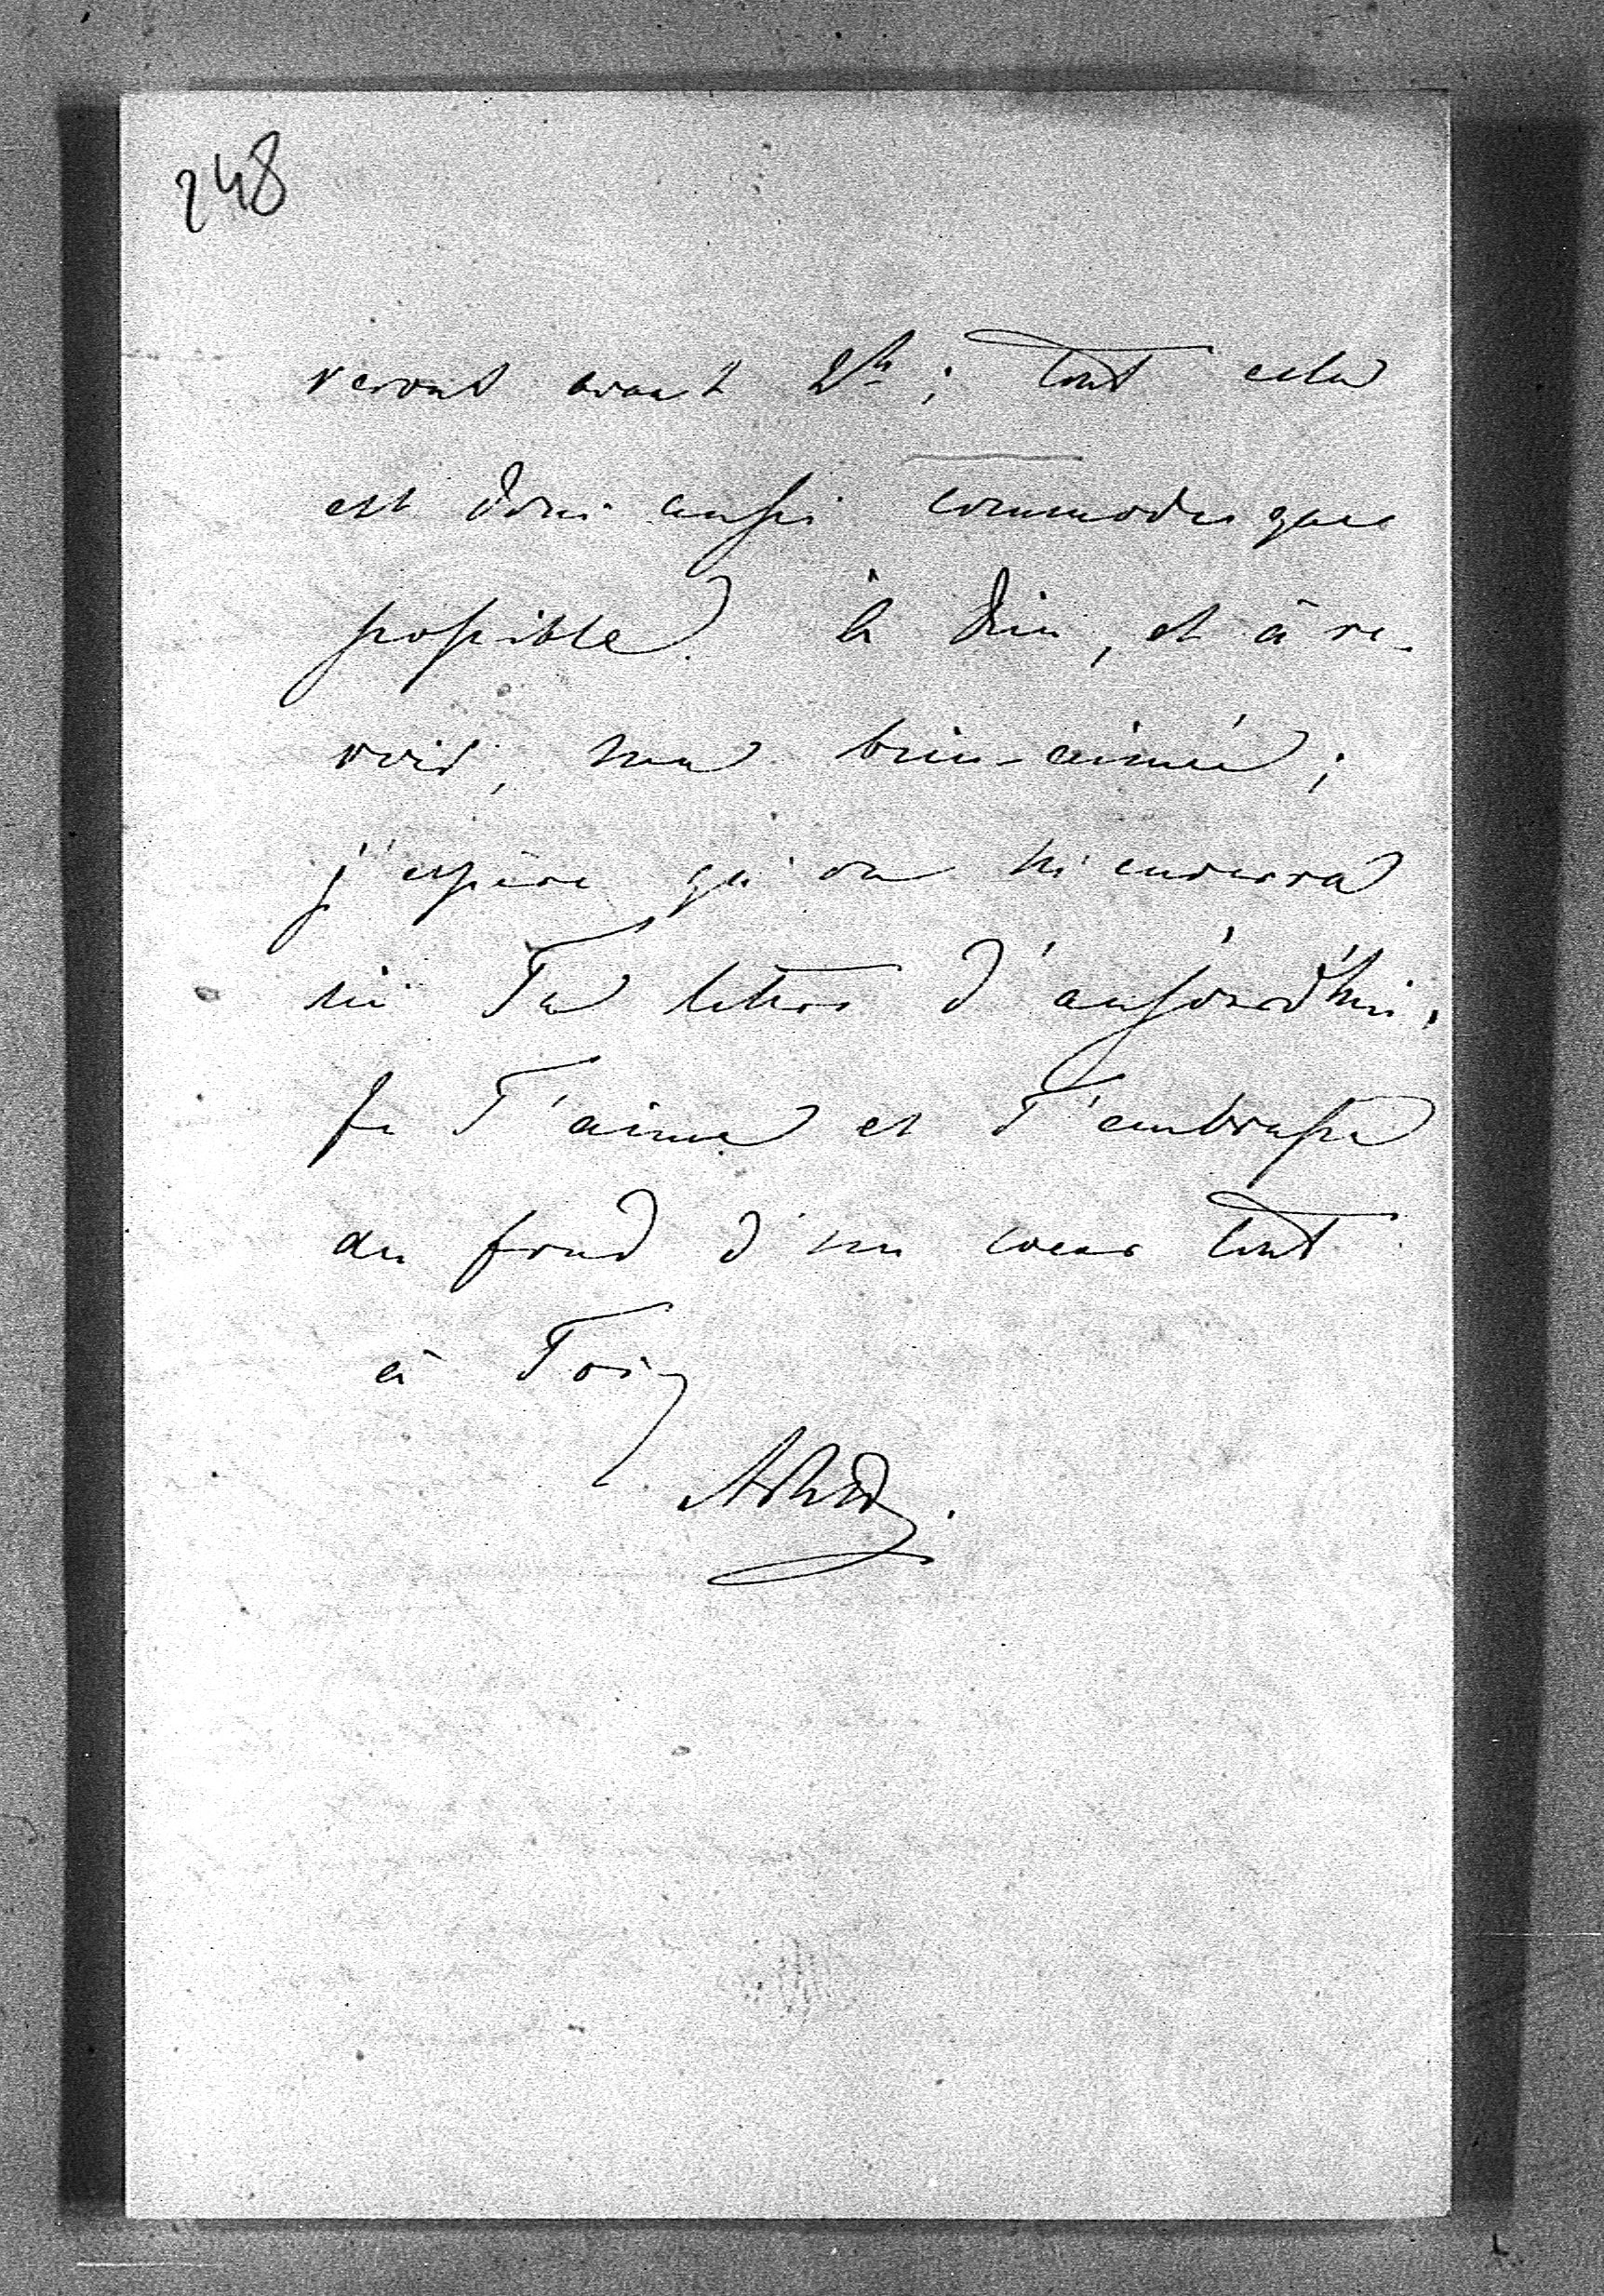 248
veront avant 2h; tout cela
est donc aussi commode que
possible. à Dieu, et à re-
voir, ma bien-aimée;
j'espère qu'on m'enverra
ici Ta lettre d'aujourd'hui.
Je T'aime et T'embrasse
du fond d'un coeur tout
à Toi,